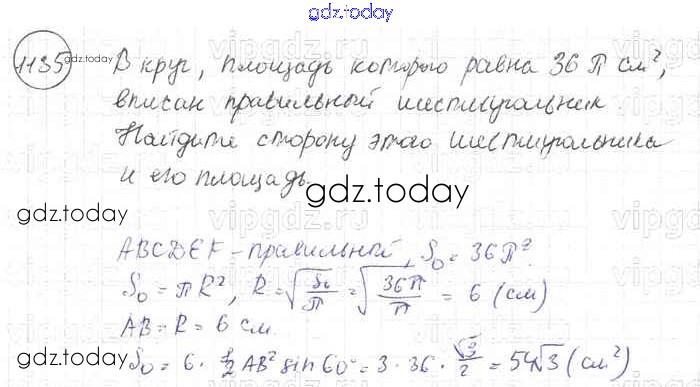 gdz.today
1135 gdz.today В круг, площадь которого равна 36 π см²,
вписан правильный шестиугольник
Найдите сторону этого шестиугольника
и его площадь.
gdz.today
gdz.today
ABCDEF - правильный, S₀ = 36π².
S₀ = πR², R = √(S₀/π) = √(36π/π) = 6 (см)
AB = R = 6 см.
gdz.today
gdz.today
S₀ = 6 · 1/2 AB² sin 60° = 3 · 36 · √3/2 = 54√3 (см²)